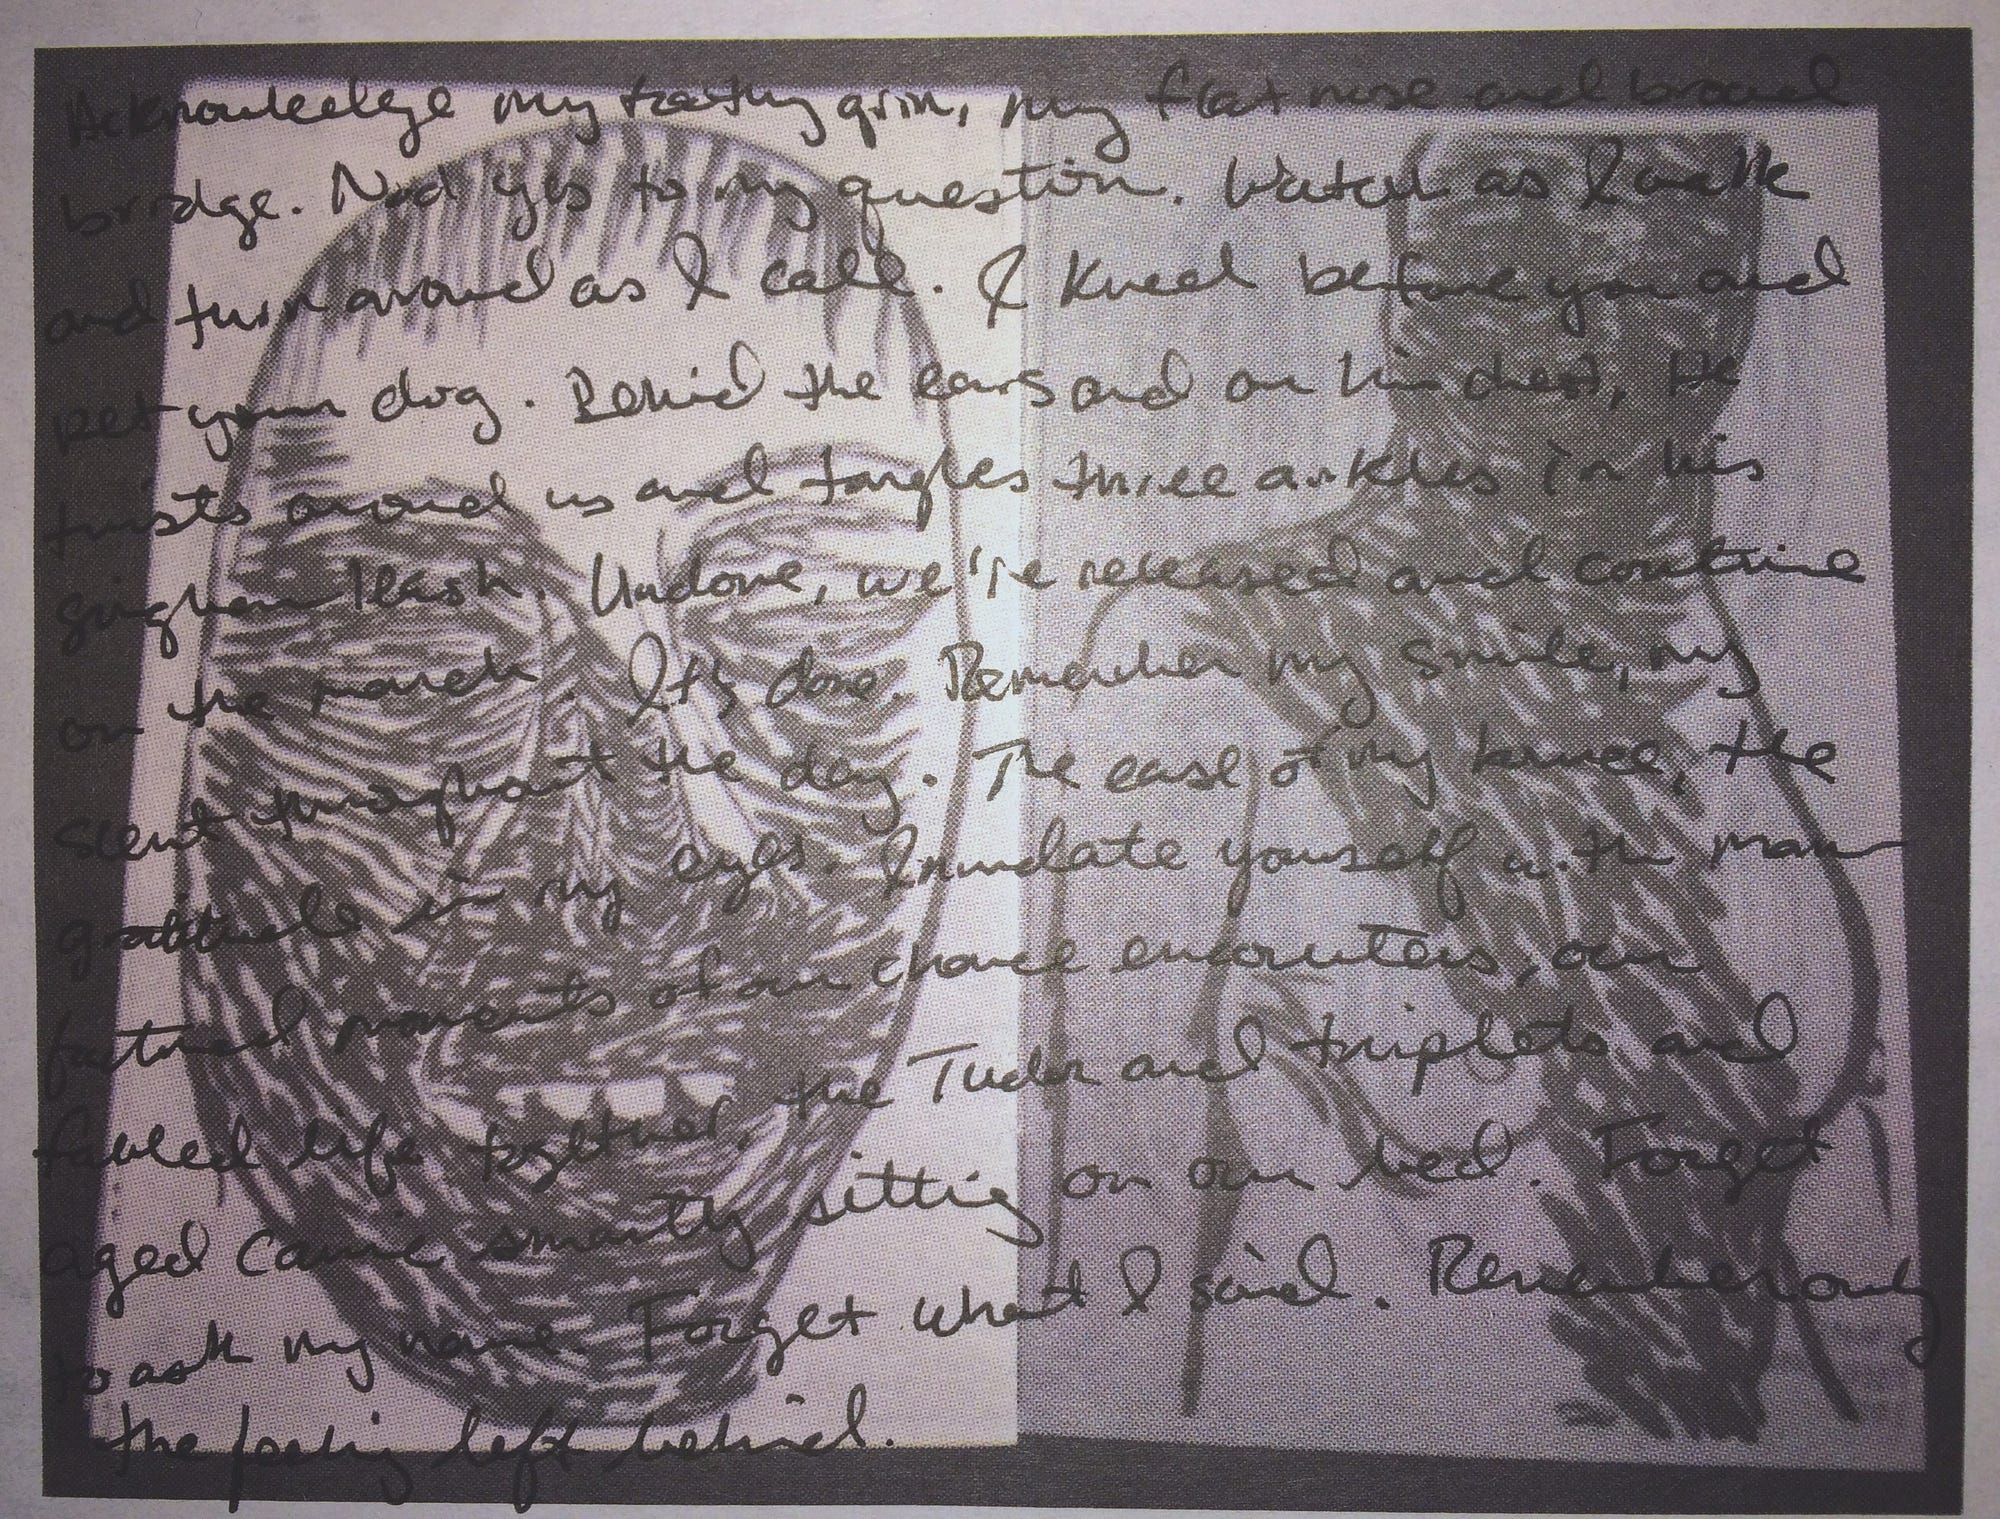 Acknowledge my toothy grin, my flat nose and broad
bridge. Nod yes to my question. Watch as I walk
and turn around as I call. I kneel before you and
pet your dog. Behind the ears and on his chest, He
twists around us and tangles three ankles in his
gingham leash. Undone, we're released and continue
on the march. It's done. Remember my smile, my
scent throughout the day. The ease of my knee, the
gratitude in my eyes. Inundate yourself with man-
factured moments of our chance encounters, our
fabled life together, the Tudor and triplets and
aged canine smartly sitting on our bed. Forget
to ask my name. Forget what I said. Remember only
the feeling left behind.